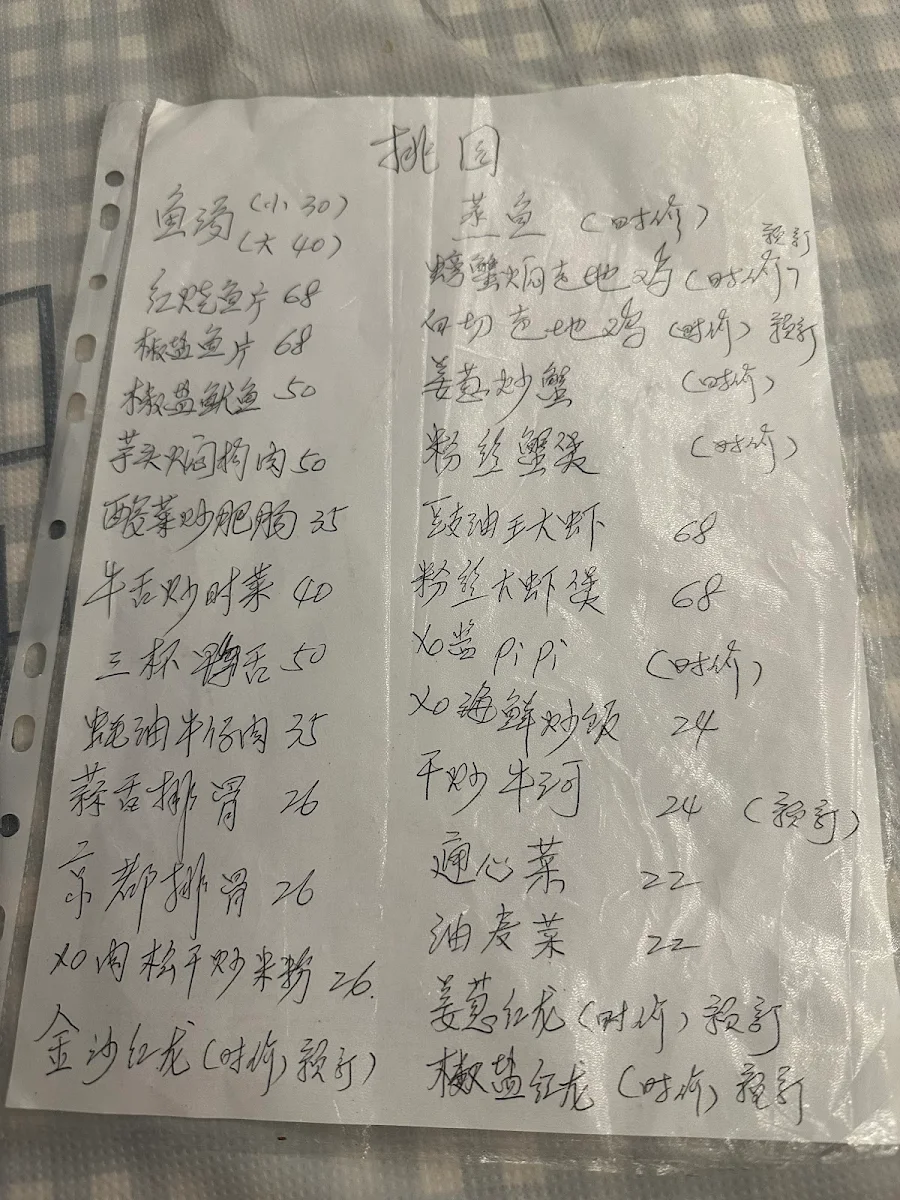 桃园
鱼汤 (小30)
(大 40)
红烧鱼片 68
椒盐鱼片 68
椒盐鱿鱼 50
芋头焖扣肉 50
酸菜炒肥肠 35
牛舌炒时菜 40
三杯鸭舌 50
蚝油牛仔肉 35
蒜舌排骨 26
京都排骨 26
XO肉松干炒米粉 26.
金沙红龙 (时价) 预订)
蒸鱼 (时价)
预订
螃蟹焖走地鸡 (时价)
白切走地鸡 (时价) 预订
姜葱炒蟹 (时价)
粉丝蟹煲 (时价)
豉油王大虾 68
粉丝大虾煲 68
XO酱 pipi (时价)
XO海鲜炒饭 24
干炒牛河 24 (预订)
通心菜 22
油麦菜 22
姜葱红龙 (时价) 预订
椒盐红龙 (时价) 预订